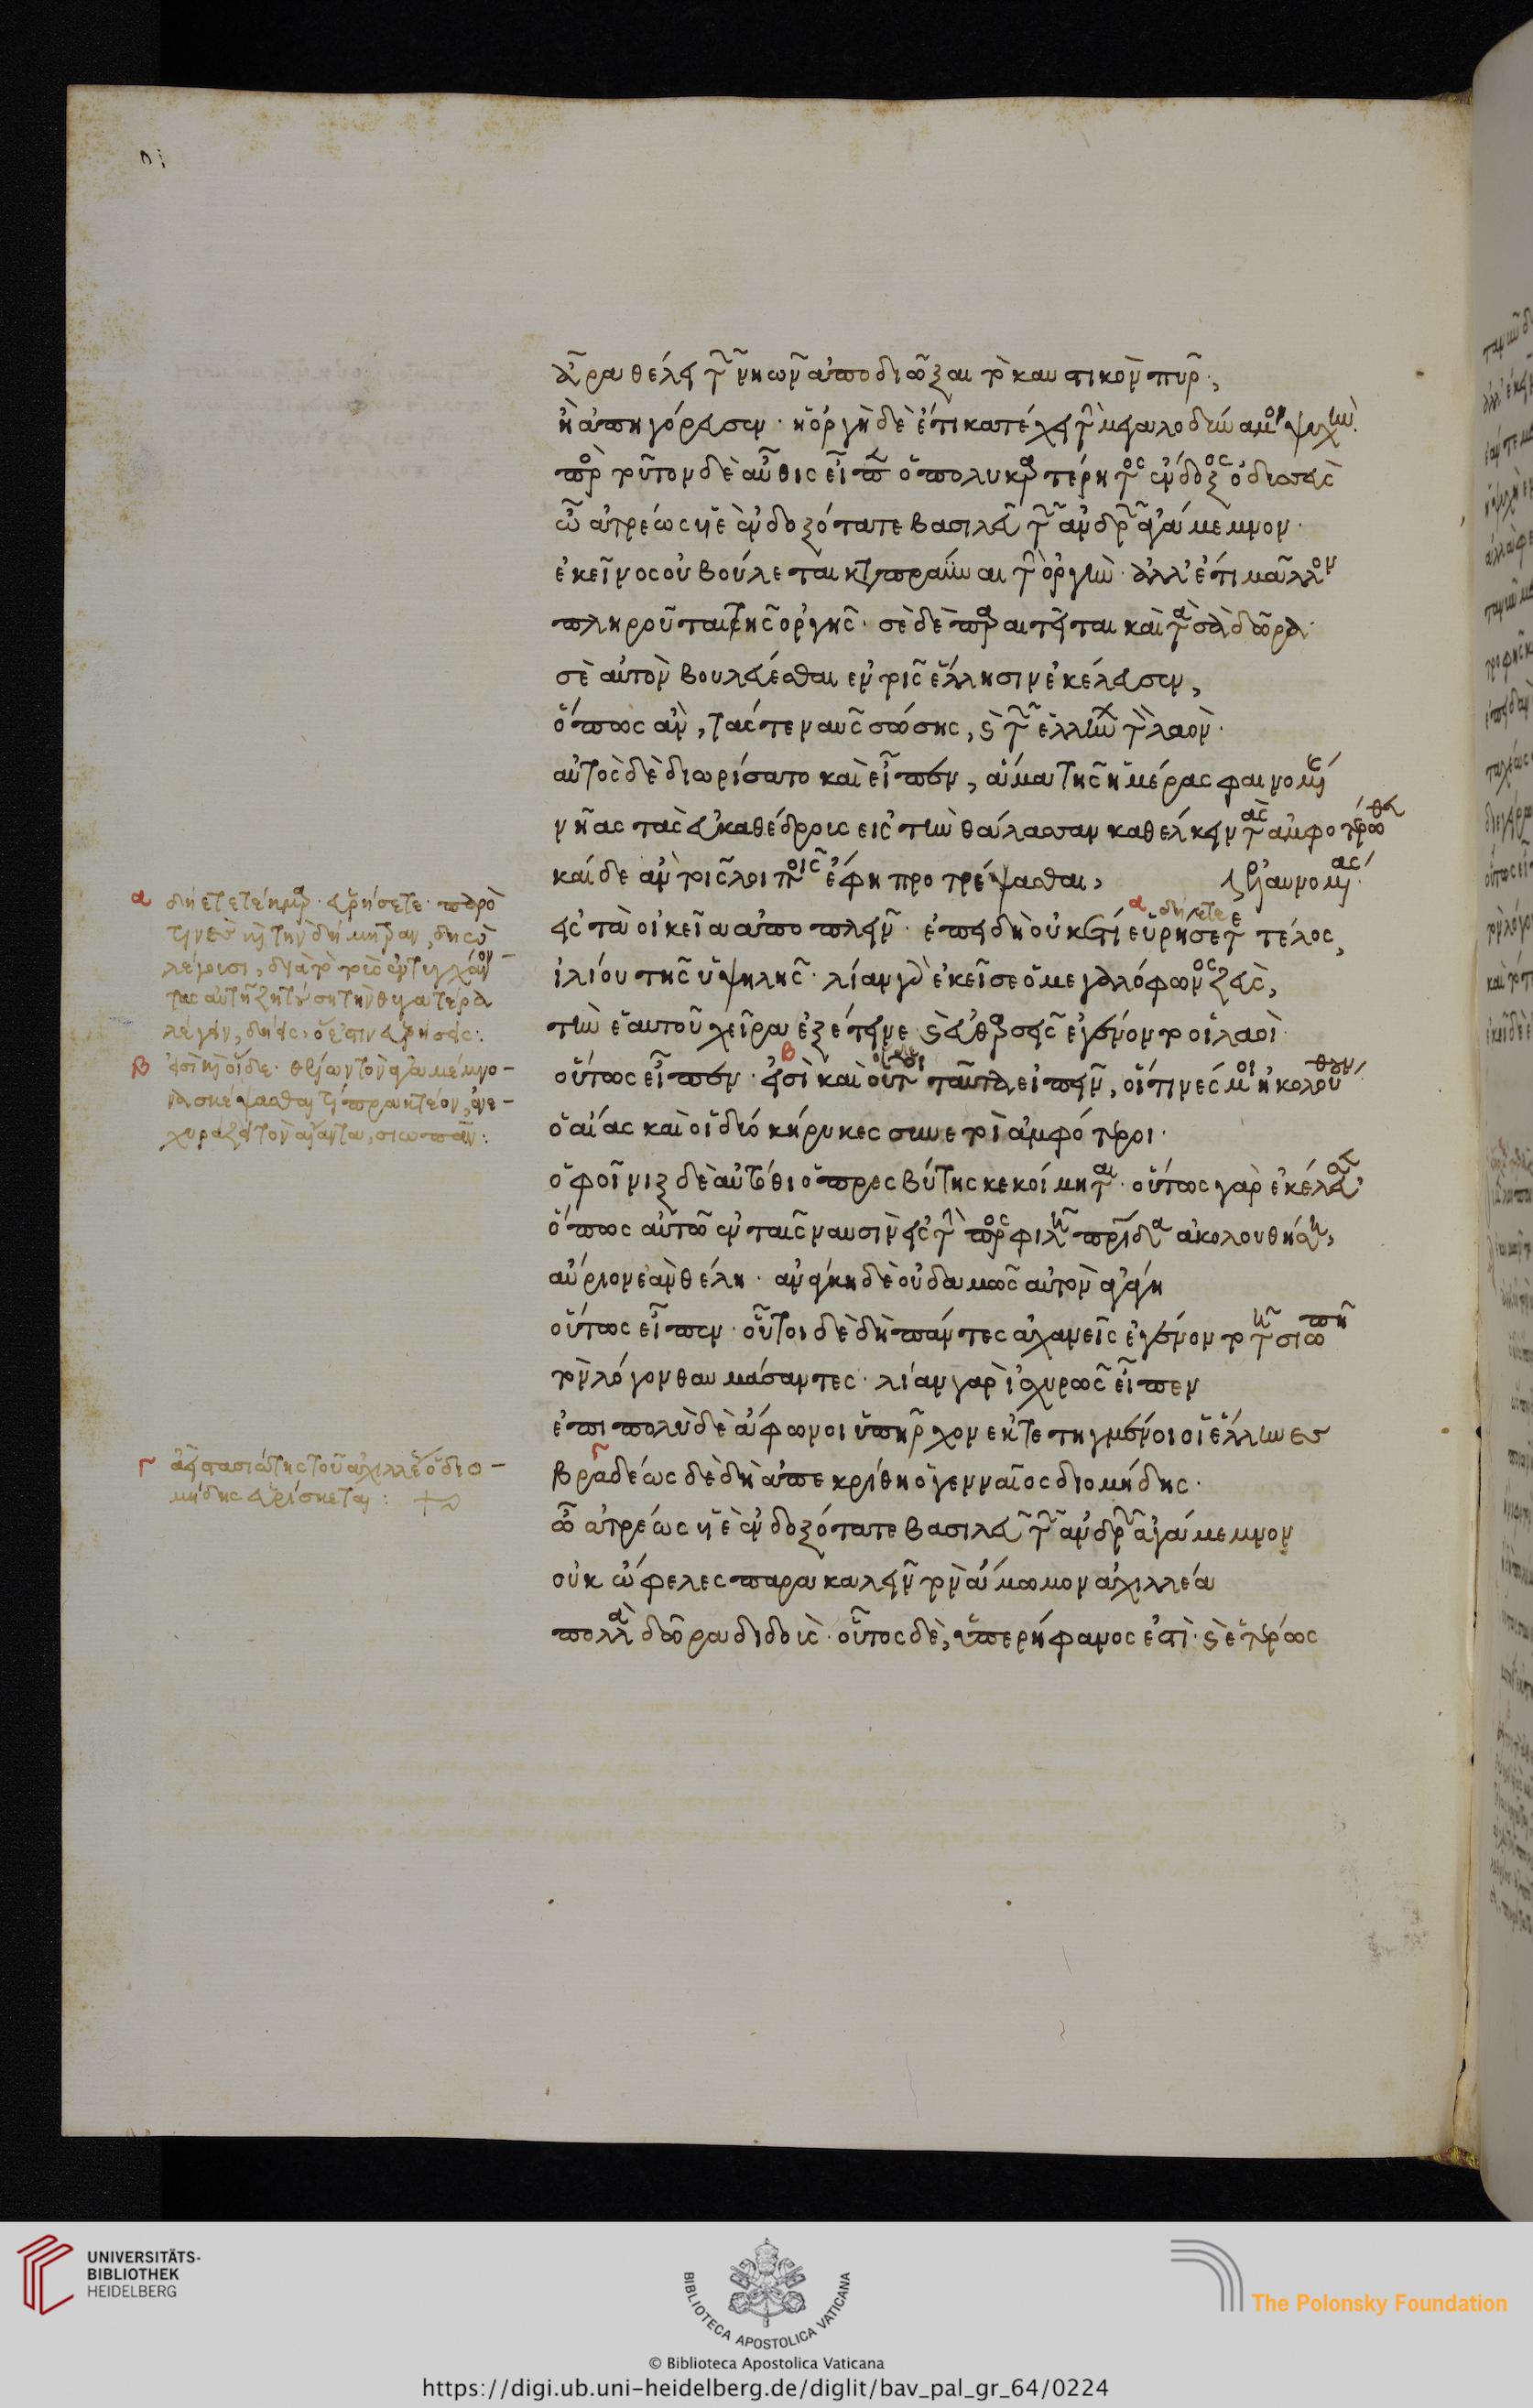 ἆρα θέλει τῶν νηῶν ἀποδιῶξαι τὸ καυστικὸν πῦρ·,
ἢ ἀπηγόρευσεν· ἡ ὀργὴ δὲ ἔτι κατέχει τὴν μεγαλοδύναμον ψυχήν.
πρὸς τοῦτον δὲ αὖθις εἶπεν ὁ πολυκαρτέρητος ἔνδοξος ὀδυσσεὺς
ὦ ἀτρέως υἱὲ ἐνδοξότατε βασιλεῦ τῶν ἀνδρῶν ἀγάμεμνον·
ἐκεῖνος οὐ βούλεται καταπραῧναι τὴν ὀργὴν· ἀλλ' ἔτι μᾶλλον
πληροῦται τῆς ὀργῆς· σὲ δὲ παραιτεῖται καὶ τὰ σὰ δῶρα·
σὲ αὐτὸν βουλεύεσθαι ἐν τοῖς ἕλλησιν ἐκέλευσεν,
ὅπως ἂν, τάς τε ναῦς σώσῃς, καὶ τῶν ἑλλήνων τὸν λαὸν·
αὐτὸς δὲ διωρίσατο καὶ εἶπεν, ἅμα τῆς ἡμέρας φαινομένης
νῆας τὰς εὐκαθέδρους εἰς τὴν θάλασσαν καθελκεῖν τὰς ἀμφοτέρωθεν
καί δε ἂν τοῖς λοιποῖς ἔφη προτρέψασθαι, ἐλαυνομένας·
εἰς τὰ οἰκεῖα ἀποπλεῖν· ἐπειδὴ οὐκέτι εὑρήσετε τέλος,
δήετε
ἰλίου τῆς ὑψηλῆς· λίαν γὰρ ἐκεῖσε ὁ μεγαλόφωνος ζεὺς,
τὴν ἑαυτοῦ χεῖρα ἐξέτεινε καὶ εὐθαρσεῖς ἐγένοντο οἱ λαοὶ·
οὕτως εἶπεν· εἰσὶ καὶ οὗτοι ταῦτα εἰπεῖν, οἵτινές μοι ἠκολούθουν
ὁ αἴας καὶ οἱ δύο κήρυκες συνετοὶ ἀμφότεροι·
ὁ φοῖνιξ δὲ αὐτόθι ὁ πρεσβύτης κεκοίμηται· οὕτως γὰρ ἐκέλευσεν
ὅπως αὐτῷ ἐν ταῖς ναυσὶν εἰς τὴν προσφιλῆ πατρίδα ἀκολουθήσῃ,
αὔριον ἐὰν θέλῃ· ἀνάγκῃ δὲ οὐδαμῶς αὐτὸν ἀγάγῃ
οὕτως εἶπεν· οὗτοι δὲ δὴ πάντες ἀχανεῖς ἐγένοντο τῇ σιωπῇ
τὸν λόγον θαυμάσαντες· λίαν γὰρ ἰσχυρῶς εἶπεν
ἐπιπολὺ δὲ ἄφωνοι ὑπῆρχον ἐκτετηγμένοι οἱ ἕλληνες
βραδέως δὲ δὴ ἀπεκρίθη ὁ γενναῖος διομήδης·
ὦ ἀτρέως υἱὲ ἐνδοξότατε βασιλεῦ τῶν ἀνδρῶν ἀγάμεμνον
οὐκ ὤφελες παρακαλεῖν τὸν ἄμωμον ἀχιλλέα
πολλὰ δῶρα διδοὺς· οὗτος δὲ, ὑπερήφανος ἐστὶ· καὶ ἑτέρως
α δήετε τέκμωρ· εὑρήσετε·
τινὲς καὶ τὴν δήμητραν, δηὼ
λέγουσι, διὰ τὸ τοὺς ἐντυγχάνοντας
αὐτῇ ζητούσῃ τὴν θυγατέρα
λέγειν, δήεις, ὅ ἐστιν εὑρήσεις:
β εἰσὶ καὶ οἵδε· τὸν ἀγαμέμνονα
σκέψασθαι τί πρακτέον,
τὸν αἴαντα, σιωπᾶν:
γ ἀντιστασιώτης τοῦ ἀχιλλέως ὁ διομήδης
εὑρίσκεται:
UNIVERSITÄTS-
BIBLIOTHEK
HEIDELBERG
BIBLIOTECA APOSTOLICA VATICANA
The Polonsky Foundation
© Biblioteca Apostolica Vaticana
https://digi.ub.uni-heidelberg.de/diglit/bav_pal_gr_64/0224